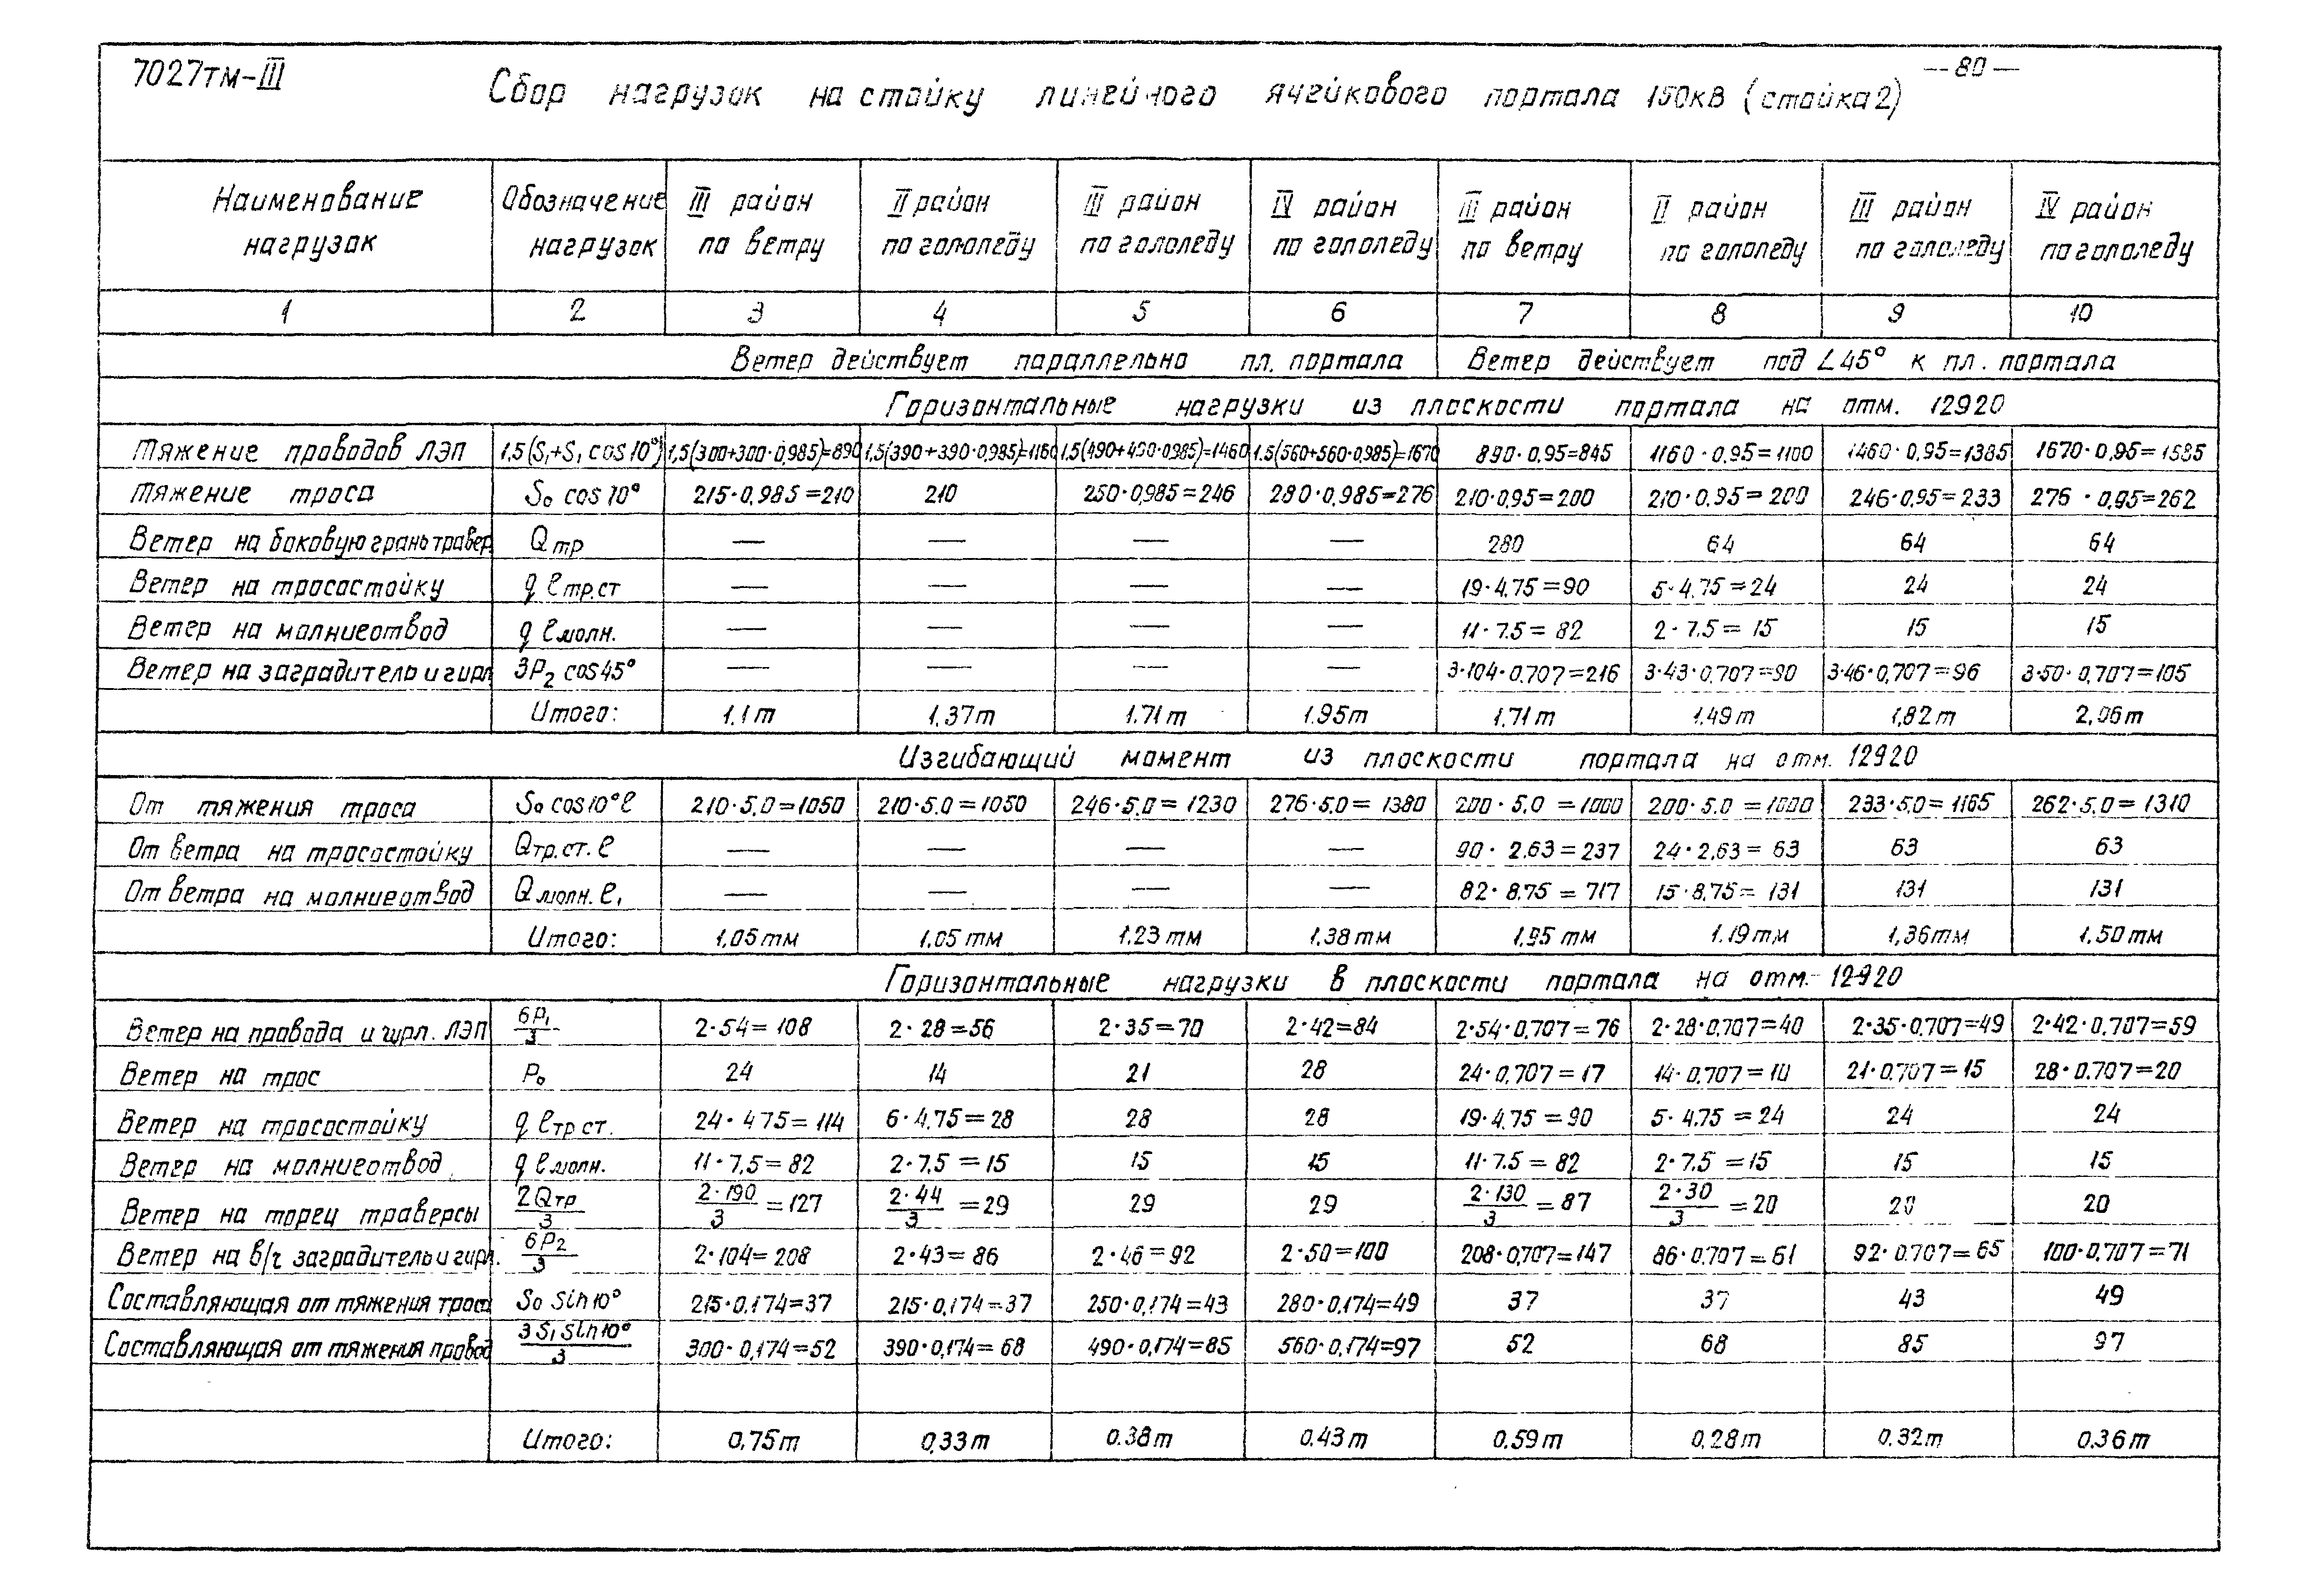 7027тм-III
—80—
Сбор нагрузок на стойку линейного ячейкового портала 150кв (стойка 2)
Наименование нагрузок | Обозначение нагрузок | III район по ветру | II район по гололеду | III район по гололеду | IV район по гололеду | III район по ветру | II район по гололеду | III район по гололеду | IV район по гололеду
1 2 3 4 5 6 7 8 9 10
Ветер действует параллельно пл. портала | Ветер действует под ∠45° к пл. портала
Горизонтальные нагрузки из плоскости портала на отм. 12920
Тяжение проводов ЛЭП | 1,5(S₁+S₁ cos10°) | 1,5(300+300·0,985)=890 | 1,5(390+390·0,985)=1160 | 1,5(490+490·0,985)=1460 | 1.5(560+560·0,985)=1670 | 890·0.95=845 | 1160·0.95=1100 | 1460·0,95=1385 | 1670·0,95=1585
Тяжение троса | S₀ cos10° | 215·0,985=210 | 210 | 250·0,985=246 | 280·0,985=276 | 210·0.95=200 | 210·0.95=200 | 246·0.95=233 | 276·0,95=262
Ветер на боковую грань травер. | Qтр | — | — | — | — | 280 | 64 | 64 | 64
Ветер на тросостойку | q ℓтр.ст | — | — | — | — | 19·4,75=90 | 5·4.75=24 | 24 | 24
Ветер на молниеотвод | q ℓмолн. | — | — | — | — | 11·7.5=82 | 2·7.5=15 | 15 | 15
Ветер на заградитель и гирл | 3P₂ cos45° | — | — | — | — | 3·104·0.707=216 | 3·43·0,707=90 | 3·46·0,707=96 | 3·50·0,707=105
Итого: | 1.1т | 1,37т | 1.71т | 1.95т | 1.71т | 1.49т | 1,82т | 2,06т
Изгибающий момент из плоскости портала на отм. 12920
От тяжения троса | S₀ cos10°ℓ | 210·5,0=1050 | 210·5.0=1050 | 246·5,0=1230 | 276·5.0=1380 | 200·5,0=1000 | 200·5.0=1000 | 233·5.0=1165 | 262·5.0=1310
От ветра на тросостойку | Qтр.ст. ℓ | — | — | — | — | 90·2.63=237 | 24·2,63=63 | 63 | 63
От ветра на молниеотвод | Qмолн. ℓ₁ | — | — | — | — | 82·8.75=717 | 15·8,75=131 | 131 | 131
Итого: | 1,05тм | 1,05тм | 1.23тм | 1.38тм | 1,95тм | 1.19тм | 1,36тм | 1.50тм
Горизонтальные нагрузки в плоскости портала на отм. 12920
Ветер на провода и гирл. ЛЭП | 6P₁/3 | 2·54=108 | 2·28=56 | 2·35=70 | 2·42=84 | 2·54·0,707=76 | 2·28·0,707=40 | 2·35·0,707=49 | 2·42·0,707=59
Ветер на трос | P₀ | 24 | 14 | 21 | 28 | 24·0,707=17 | 14·0,707=10 | 21·0.707=15 | 28·0.707=20
Ветер на тросостойку | q ℓтр ст. | 24·4 75=114 | 6·4,75=28 | 28 | 28 | 19·4,75=90 | 5·4.75=24 | 24 | 24
Ветер на молниеотвод | q ℓмолн. | 11·7,5=82 | 2·7,5=15 | 15 | 15 | 11·7.5=82 | 2·7.5=15 | 15 | 15
Ветер на торец траверсы | 2Qтр/3 | 2·190/3=127 | 2·44/3=29 | 29 | 29 | 2·130/3=87 | 2·30/3=20 | 20 | 20
Ветер на в/ч заградитель и гирл. | 6P₂/3 | 2·104=208 | 2·43=86 | 2·46=92 | 2·50=100 | 208·0,707=147 | 86·0.707=61 | 92·0.707=65 | 100·0,707=71
Составляющая от тяжения троса | S₀ Sin10° | 215·0.174=37 | 215·0,174=37 | 250·0,174=43 | 280·0.174=49 | 37 | 37 | 43 | 49
Составляющая от тяжения провод | 3S₁ Sin10°/3 | 300·0,174=52 | 390·0,174=68 | 490·0.174=85 | 560·0.174=97 | 52 | 68 | 85 | 97
Итого: | 0,75т | 0,33т | 0.38т | 0.43т | 0.59т | 0,28т | 0.32т | 0.36т